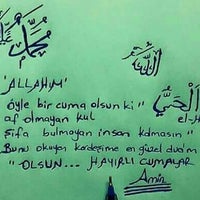 محمد
الله
"ALLAHIM"
öyle bir cuma olsun ki "
af olmayan kul
şifa bulmayan insan kalmasın "
Bunu okuyan kardeşime en güzel dua'm
" OLSUN... HAYIRLI CUMALAR
Amin
الْحَيُّ
el-H